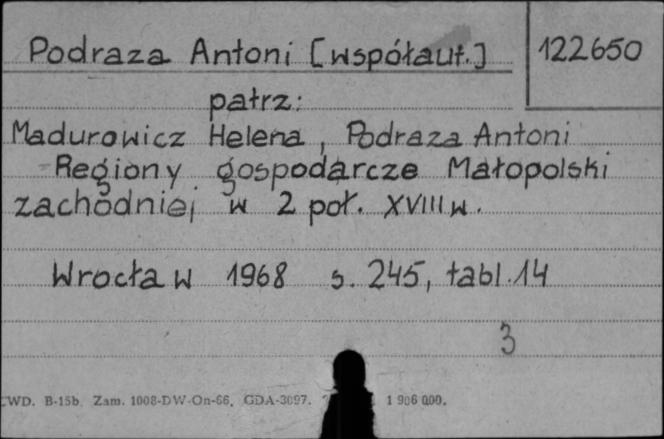 Podraza Antoni [współaut.] 122650
patrz:
Madurowicz Helena, Podraza Antoni
Regiony gospodarcze Małopolski
zachodniej w 2 poł. XVIII w.
Wrocław 1968 s. 245, tabl. 14
3
CWD. B-15b. Zam. 1008-DW-On-66. GDA-3097. 1 906 000.